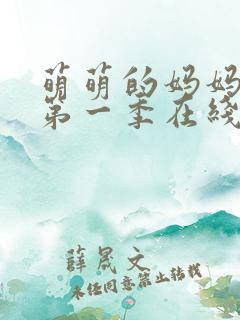 萌萌的妈妈
第一季在线
薛晟文
未经同意禁止转载